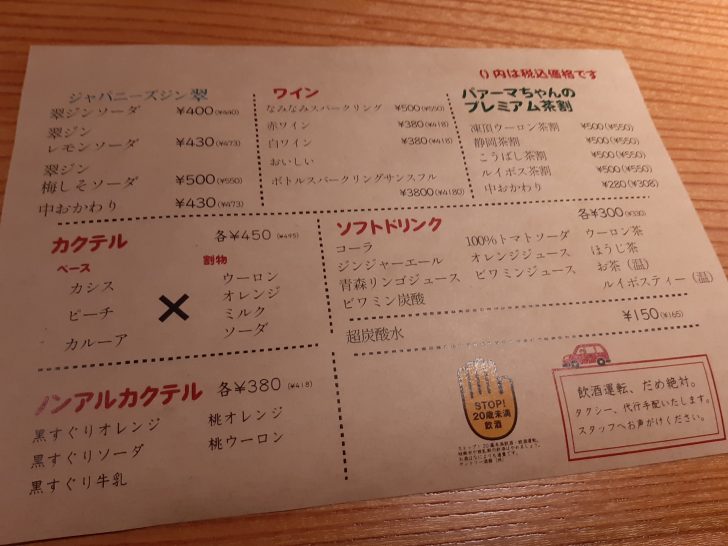 ()内は税込価格です
ジャパニーズジン翠
翠ジンソーダ ¥400(¥440)
翠ジン
レモンソーダ ¥430(¥473)
翠ジン
梅しそソーダ ¥500(¥550)
中おかわり ¥430(¥473)
ワイン
なみなみスパークリング ¥500(¥550)
赤ワイン ¥380(¥418)
白ワイン ¥380(¥418)
おいしい
ボトルスパークリングサンスフル
¥3800(¥4180)
パァーマちゃんの
プレミアム茶割
凍頂ウーロン茶割 ¥500(¥550)
静岡茶割 ¥500(¥550)
こうばし茶割 ¥500(¥550)
ルイボス茶割 ¥500(¥550)
中おかわり ¥280(¥308)
カクテル 各¥450(¥495)
ベース
カシス
ピーチ
カルーア
×
割物
ウーロン
オレンジ
ミルク
ソーダ
ソフトドリンク 各¥300(¥330)
コーラ
ジンジャーエール
青森リンゴジュース
ビワミン炭酸
100%トマトソーダ
オレンジジュース
ビワミンジュース
ウーロン茶
ほうじ茶
お茶(温)
ルイボスティー(温)
超炭酸水 ¥150(¥165)
ノンアルカクテル 各¥380(¥418)
黒すぐりオレンジ
黒すぐりソーダ
黒すぐり牛乳
桃オレンジ
桃ウーロン
STOP!
20歳未満
飲酒
飲酒運転、だめ絶対。
タクシー、代行手配いたします。
スタッフへお声がけください。